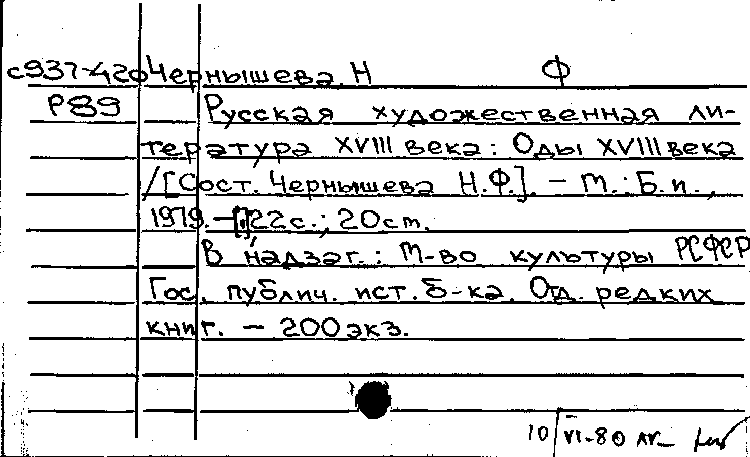 с937-420 Чернышева Н Ф
Р89 Русская художественная ли-
тература XVIII века: Оды XVIII века
/[Сост. Чернышева Н.Ф.]. – М.: Б.и.,
1979. – 22с.; 20 см.
В надзаг.: М-во культуры РСФСР
Гос. публич. ист. б-ка. Отд. редких
книг. – 200 экз.
10 VI-80